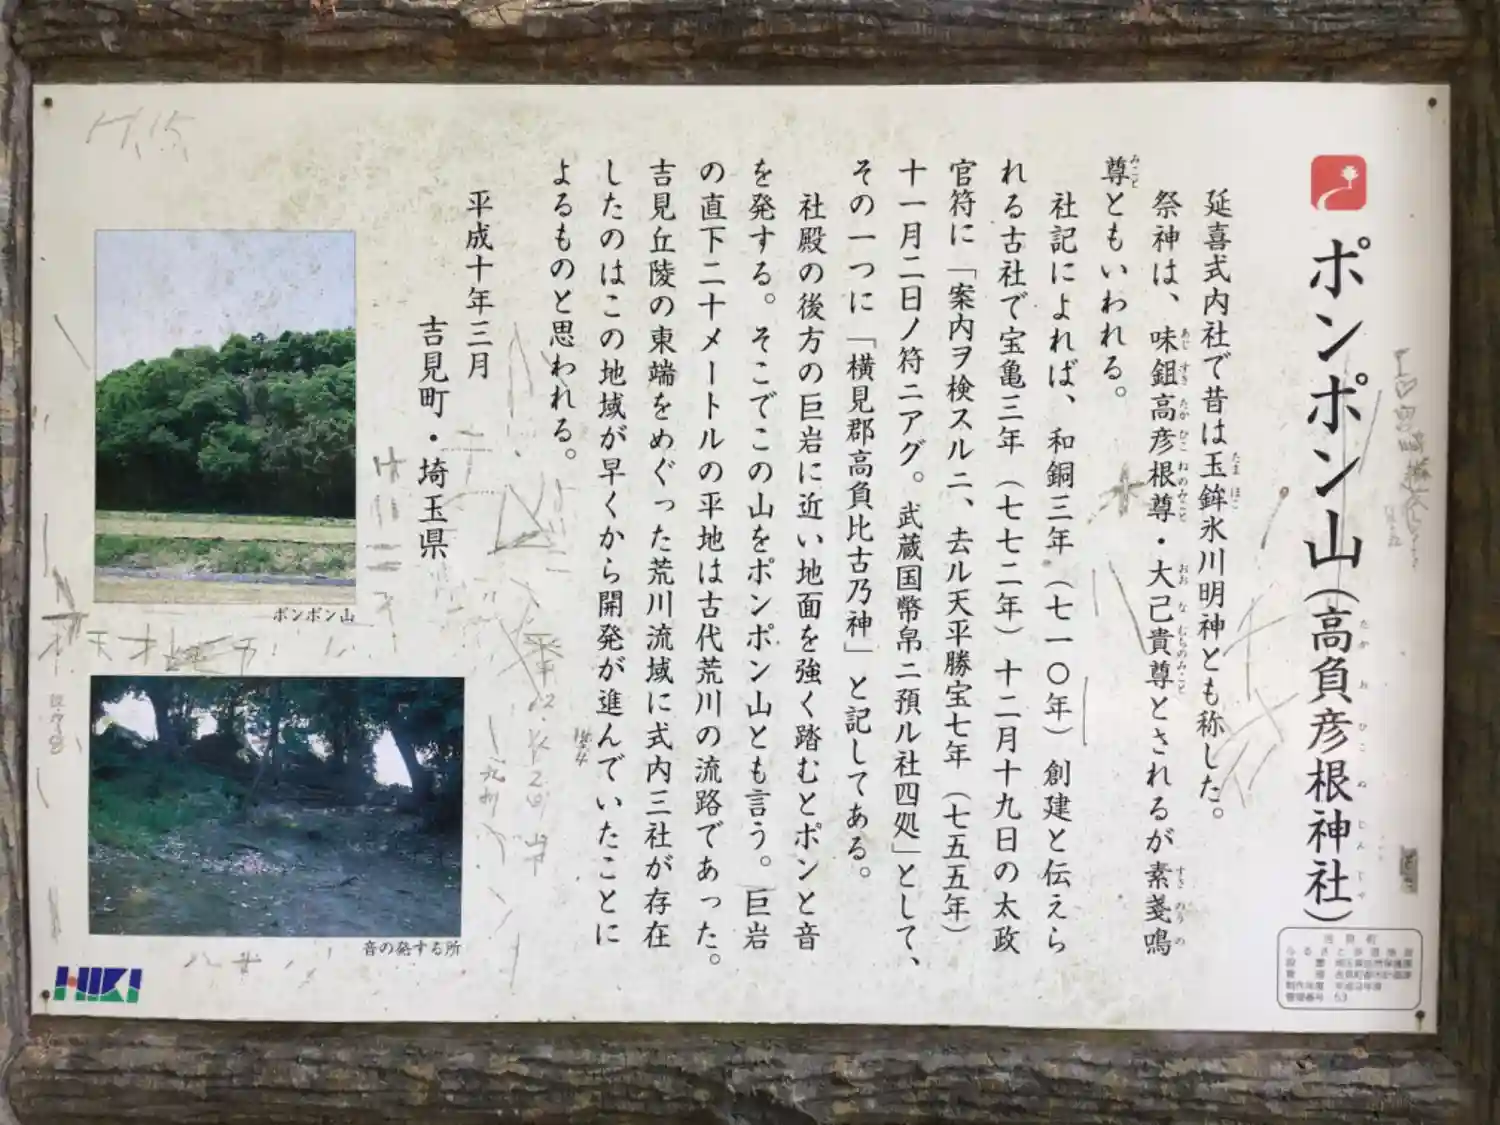 ポンポン山(高負彦根神社)
たか お ひこ ね じん じゃ
延喜式内社で昔は玉鉾氷川明神とも称した。
たま ほこ
祭神は、味鉏高彦根尊・大己貴尊とされるが素戔嗚
あじ すき たか ひこ ねのみこと おお な むちのみこと すさ のう の
尊ともいわれる。
みこと
社記によれば、和銅三年(七一〇年)創建と伝えら
れる古社で宝亀三年(七七二年)十二月十九日の太政
官符に「案内ヲ検スルニ、去ル天平勝宝七年(七五五年)
十一月二日ノ符ニアグ。武蔵国幣帛ニ預ル社四処」として、
その一つに「横見郡高負比古乃神」と記してある。
社殿の後方の巨岩に近い地面を強く踏むとポンと音
を発する。そこでこの山をポンポン山とも言う。巨岩
の直下二十メートルの平地は古代荒川の流路であった。
吉見丘陵の東端をめぐった荒川流域に式内三社が存在
したのはこの地域が早くから開発が進んでいたことに
よるものと思われる。
平成十年三月
吉見町・埼玉県
ポンポン山
音の発する所
HIKI